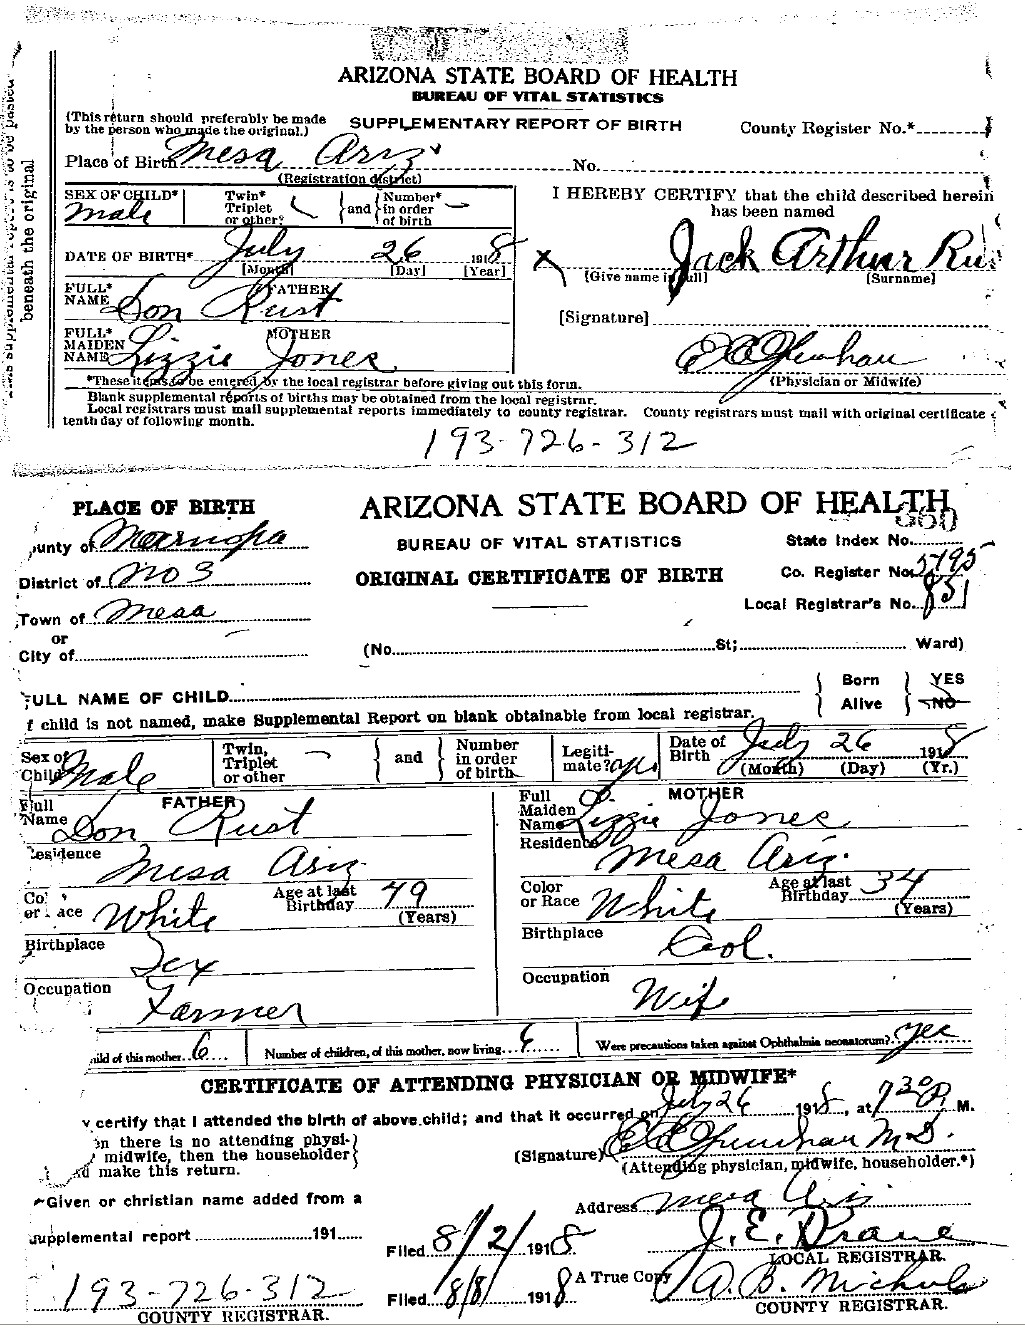 ARIZONA STATE BOARD OF HEALTH
BUREAU OF VITAL STATISTICS
(This return should preferably be made
by the person who made the original.)
SUPPLEMENTARY REPORT OF BIRTH
County Register No.*
Place of Birth Mesa Ariz No.
(Registration district)
beneath the original
SEX OF CHILD* Male
Twin* Triplet or other? and Number* in order of birth
DATE OF BIRTH* July 26 1918
[Month] [Day] [Year]
FULL* NAME FATHER Don Rust
FULL* MAIDEN NAME MOTHER Lizzie Jones
I HEREBY CERTIFY that the child described herein
has been named
X Jack Arthur
[Give name in full] [Surname]
[Signature]
(Physician or Midwife)
*These items to be entered by the local registrar before giving out this form.
Blank supplemental reports of births may be obtained from the local registrar.
Local registrars must mail supplemental reports immediately to county registrar. County registrars must mail with original certificate
tenth day of following month.
193-726-312
PLACE OF BIRTH
ARIZONA STATE BOARD OF HEALTH
unty of Maricopa
BUREAU OF VITAL STATISTICS
State Index No. 360
District of No 3
ORIGINAL CERTIFICATE OF BIRTH
Co. Register No. 5795
Town of Mesa
Local Registrar's No. 851
or
City of
(No. St; Ward)
FULL NAME OF CHILD
Born Alive YES NO
f child is not named, make Supplemental Report on blank obtainable from local registrar.
Sex of Child Male
Twin, Triplet or other and Number in order of birth
Legitimate? yes
Date of Birth July 26 1918
(Month) (Day) (Yr.)
Full Name FATHER Don Rust
Residence Mesa Ariz.
Co or ace White
Age at last Birthday 49 (Years)
Birthplace Tex
Occupation Farmer
Full Maiden Name MOTHER Lizzie Jones
Residence Mesa Ariz.
Color or Race White
Age at last Birthday 34 (Years)
Birthplace Col.
Occupation Wife
hild of this mother 6
Number of children, of this mother, now living 6
Were precautions taken against Ophthalmia neonatorum? yes
CERTIFICATE OF ATTENDING PHYSICIAN OR MIDWIFE*
y certify that I attended the birth of above child; and that it occurred on July 26 1918, at 730 P. M.
n there is no attending physi-
midwife, then the householder
make this return.
(Signature) M D.
(Attending physician, midwife, householder.*)
*Given or christian name added from a
Address Mesa Ariz.
supplemental report 191
Filed 8/2/1918
J. E. Drane
LOCAL REGISTRAR.
193-726-312
COUNTY REGISTRAR.
Filed 8/8/ 1918
A True Copy
A. B. Nichols
COUNTY REGISTRAR.